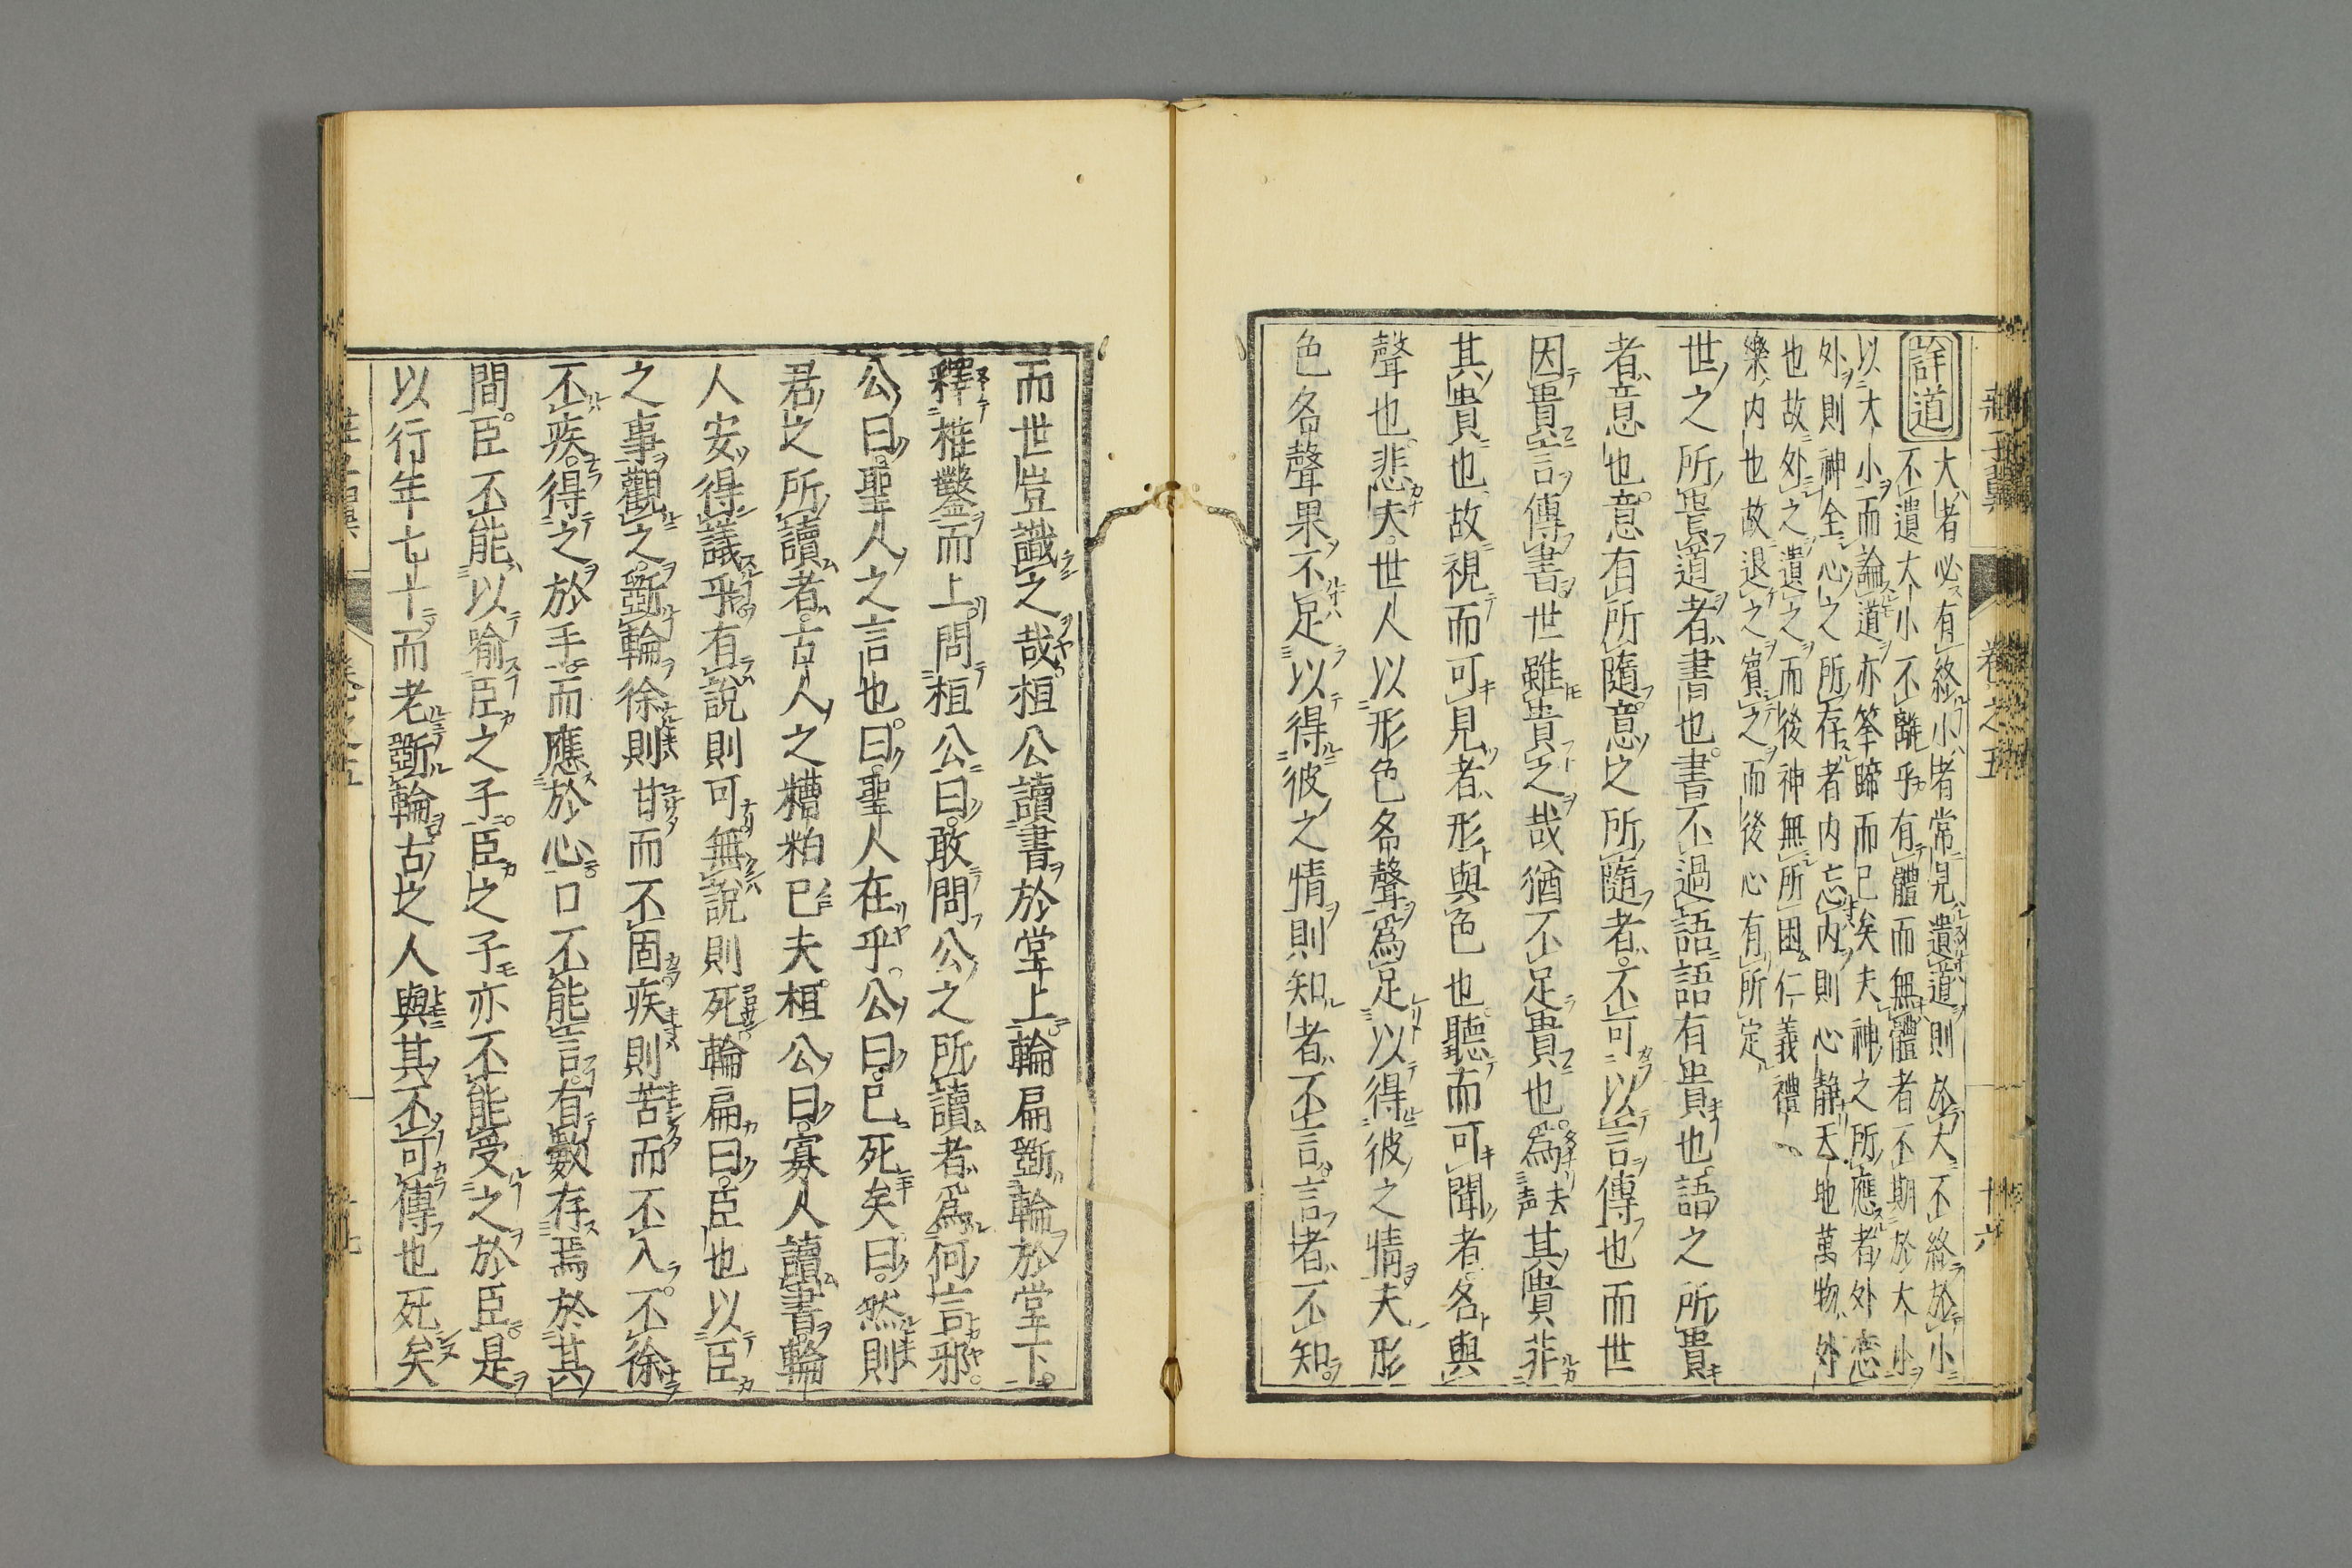 莊子翼 卷之五 十六
詳道
大者必有終小者常見遺道則於大不終於小
不遺大小不離乎有體而無體者不期於大小
以大小而論道亦筌蹄而已矣夫神之所應者外恋
外則神全心之所存者内忘内則心静天地萬物外
也故外之遺之而後神無所困仁義禮
樂内也故退之賓之而後心有所定
世之所貴道者書也書不過語語有貴也語之所貴
者意也意有所隨意之所隨者不可以言傳也而世
因貴言傳書世雖貴之哉猶不足貴也為声夫其貴非
其貴也故視而可見者形與色也聽而可聞者名與
聲也悲夫世人以形色名聲爲足以得彼之情夫形
色名聲果不足以得彼之情則知者不言言者不知
而世豈識之哉桓公讀書於堂上輪扁斲輪於堂下
釋椎鑿而上問桓公曰敢問公之所讀者爲何言邪
公曰聖人之言也曰聖人在乎公曰已死矣曰然則
君之所讀者古人之糟粕已夫桓公曰寡人讀書輪
人安得議乎有説則可無説則死輪扁曰臣也以臣
之事觀之斲輪徐則甘而不固疾則苦而不入不徐
不疾得之於手而應於心口不能言有數存焉於其
間臣不能以喻臣之子臣之子亦不能受之於臣是
以行年七十而老斲輪古之人與其不可傳也死矣